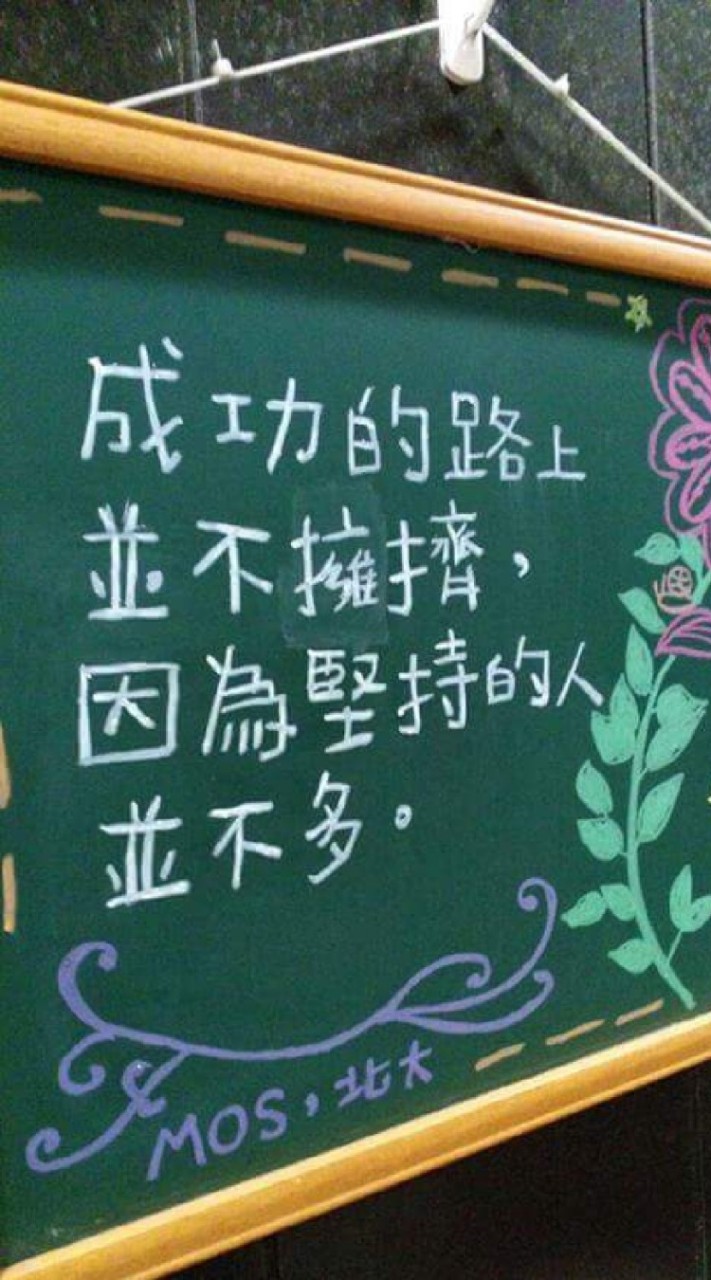 成功的路上
並不擁擠，
因為堅持的人
並不多。
MOS，北大